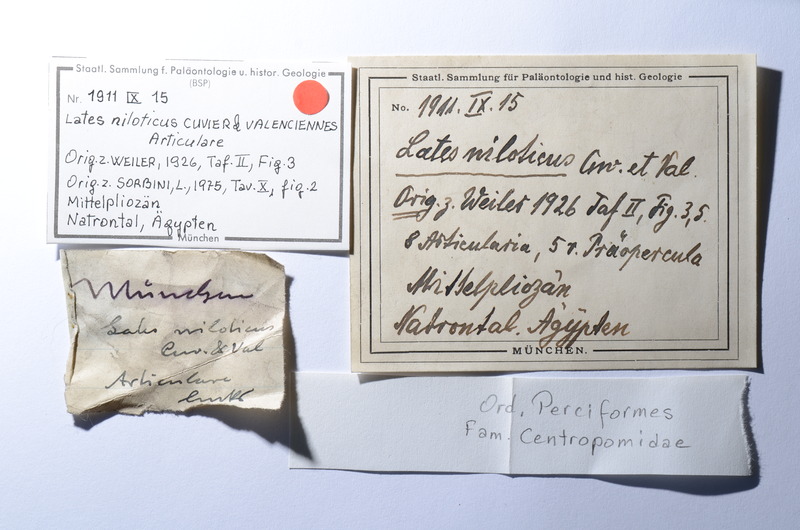 Staatl. Sammlung f. Paläontologie u. histor. Geologie
(BSP)
Nr. 1911 IX 15
Lates niloticus CUVIER & VALENCIENNES
Articulare
Orig. z. WEILER, 1926, Taf. II, Fig. 3
Orig. z. SORBINI, L., 1975, Tav. X, fig. 2
Mittelpliozän
Natrontal, Ägypten
München
Staatl. Sammlung für Paläontologie und hist. Geologie
No. 1911. IX. 15
Lates niloticus Cuv. et Val.
Orig. z. Weiler 1926 Taf II, Fig. 3, 5.
8 Articularia, 5 r. Präopercula
Mittelpliozän
Natrontal. Ägypten
MÜNCHEN.
München
Lates niloticus
Cuv. & Val
Articulare
links
Ord. Perciformes
Fam. Centropomidae